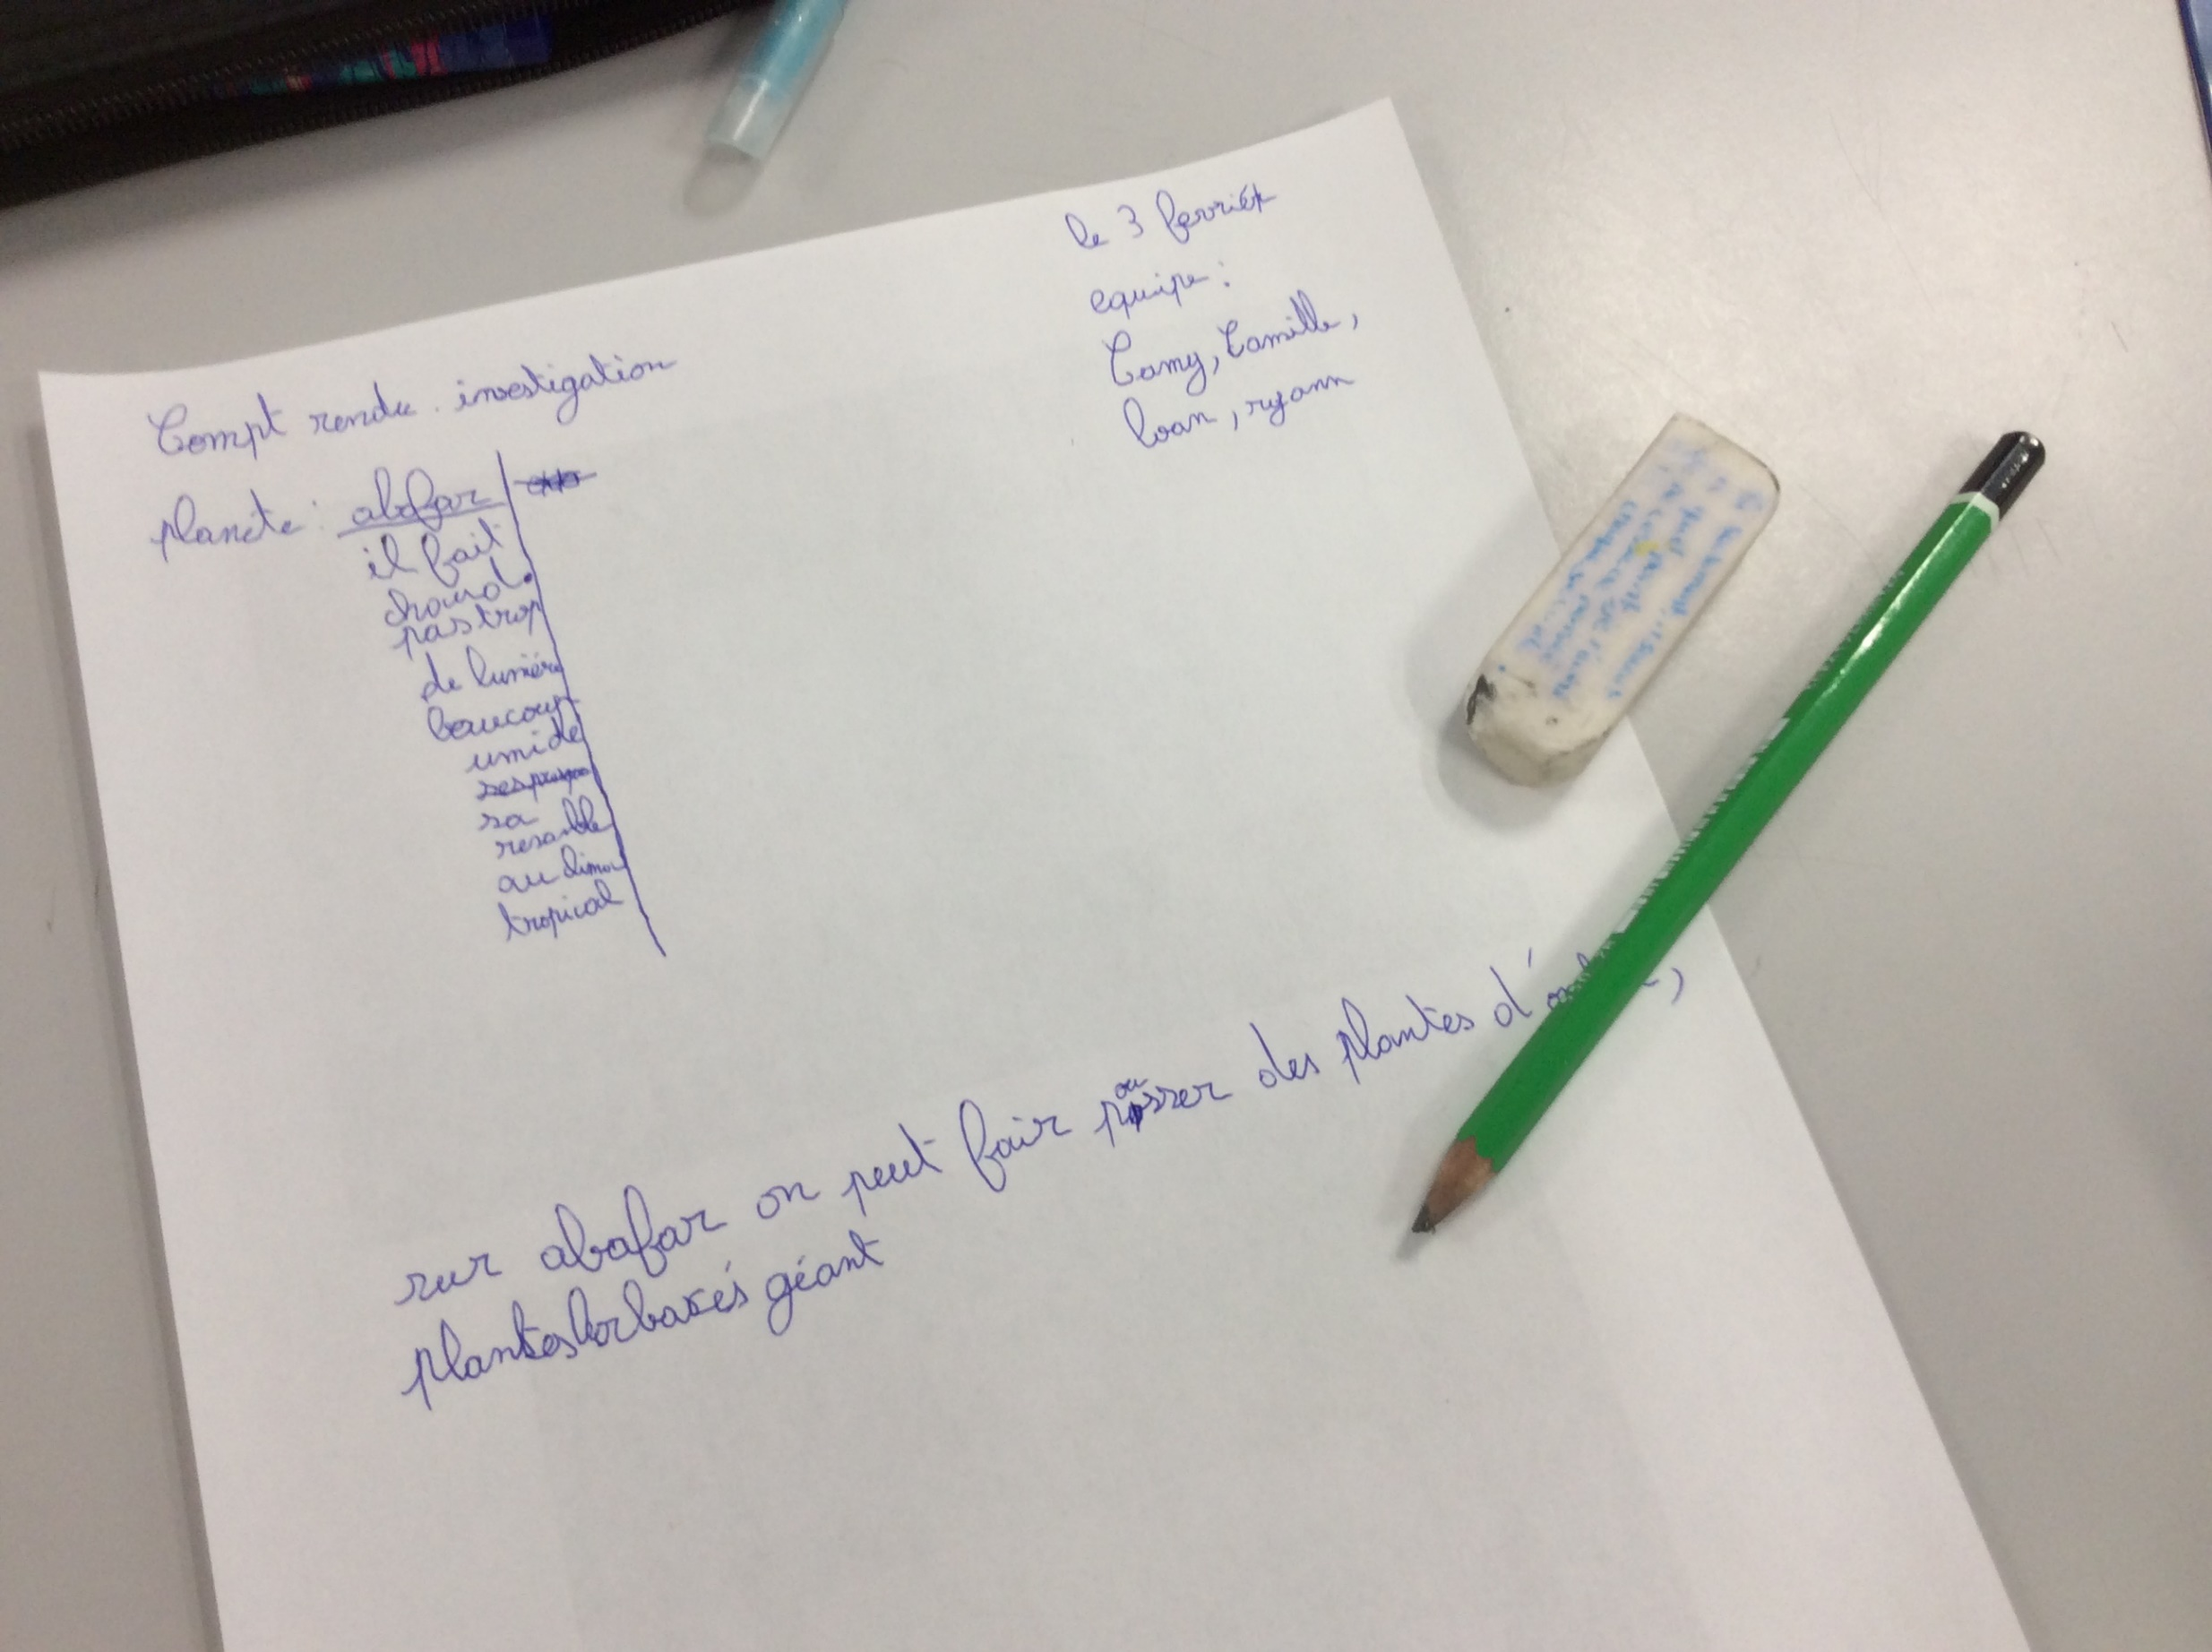 le 3 fevrier
equipe :
Camy, Camille,
loan, ryann
Compt rendu investigation
planéte : abafar
il fait
chaud.
pas trop
de lumiére
beaucoup
umide
sa
resanble
au climat
tropical
sur abafar on peut fair pousser des plantes
plantes herbacés géant